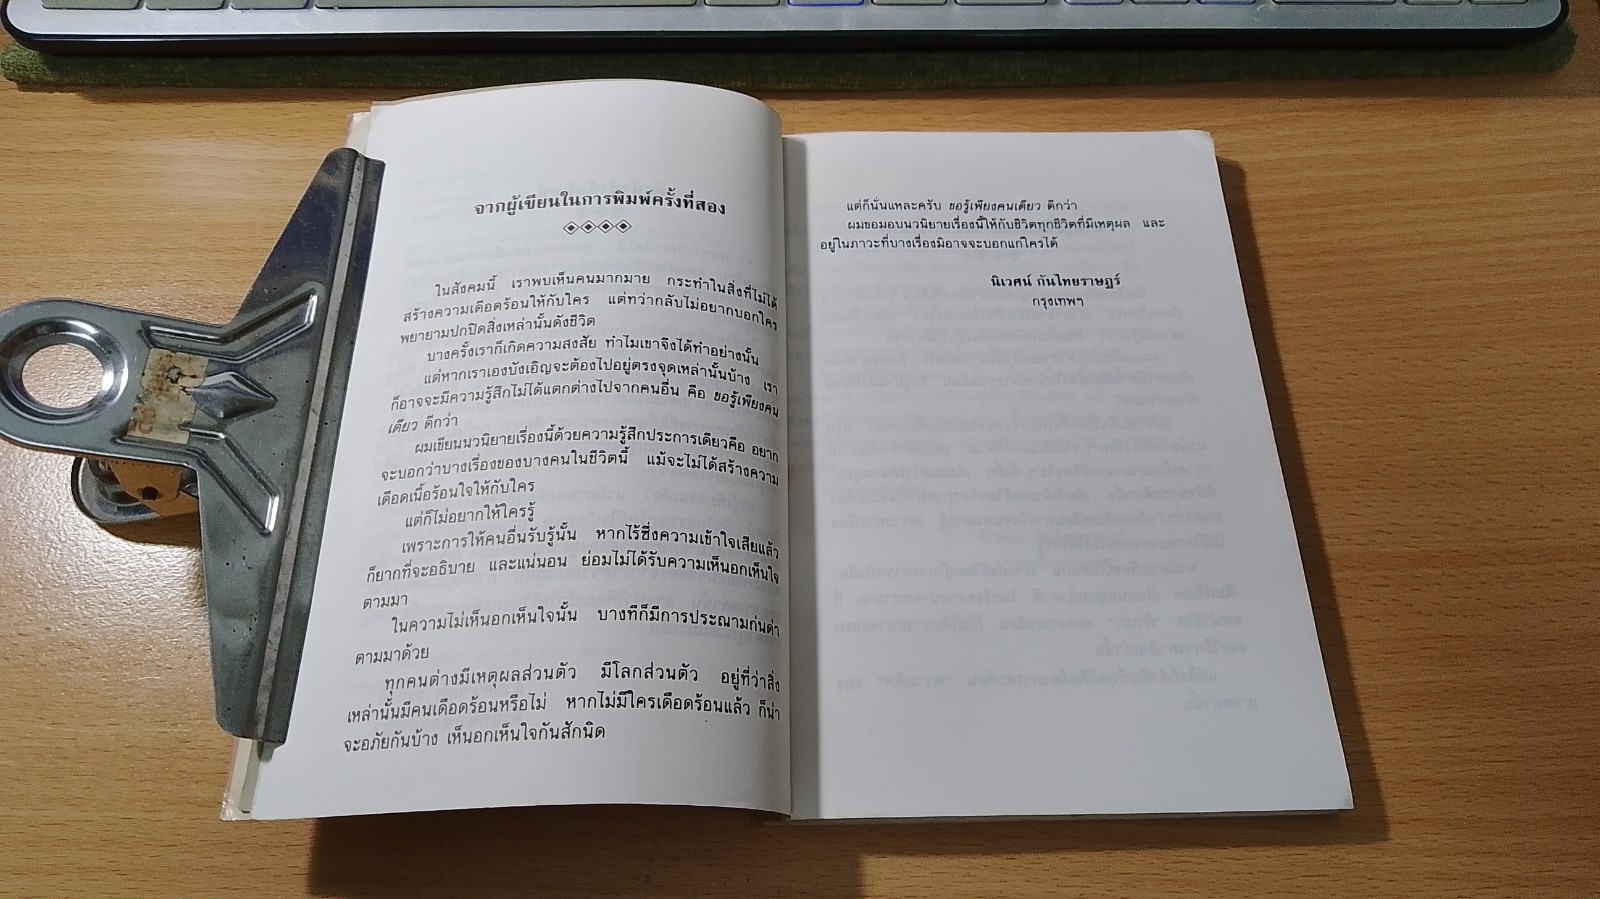 จากผู้เขียนในการพิมพ์ครั้งที่สอง
ในสังคมนี้ เราพบเห็นคนมากมาย กระทำในสิ่งที่ไม่ได้
สร้างความเดือดร้อนให้กับใคร แต่ทว่ากลับไม่อยากบอกใคร
พยายามปกปิดสิ่งเหล่านั้นดังชีวิต
บางครั้งเราก็เกิดความสงสัย ทำไมเขาจึงได้ทำอย่างนั้น
แต่หากเราเองบังเอิญจะต้องไปอยู่ตรงจุดเหล่านั้นบ้าง เรา
ก็อาจจะมีความรู้สึกไม่ได้แตกต่างไปจากคนอื่น คือ ขอรู้เพียงคน
เดียว ดีกว่า
ผมเขียนนวนิยายเรื่องนี้ด้วยความรู้สึกประการเดียวคือ อยาก
จะบอกว่าบางเรื่องของบางคนในชีวิตนี้ แม้จะไม่ได้สร้างความ
เดือดเนื้อร้อนใจให้กับใคร
แต่ก็ไม่อยากให้ใครรู้
เพราะการให้คนอื่นรับรู้นั้น หากไร้ซึ่งความเข้าใจเสียแล้ว
ก็ยากที่จะอธิบาย และแน่นอน ย่อมไม่ได้รับความเห็นอกเห็นใจ
ตามมา
ในความไม่เห็นอกเห็นใจนั้น บางทีก็มีการประณามก่นด่า
ตามมาด้วย
ทุกคนต่างมีเหตุผลส่วนตัว มีโลกส่วนตัว อยู่ที่ว่าสิ่ง
เหล่านั้นมีคนเดือดร้อนหรือไม่ หากไม่มีใครเดือดร้อนแล้ว ก็น่า
จะอภัยกันบ้าง เห็นอกเห็นใจกันสักนิด
แต่ก็นั่นแหละครับ ขอรู้เพียงคนเดียว ดีกว่า
ผมขอมอบนวนิยายเรื่องนี้ให้กับชีวิตทุกชีวิตที่มีเหตุผล และ
อยู่ในภาวะที่บางเรื่องมิอาจจะบอกแก่ใครได้
นิเวศน์ กันไทยราษฎร์
กรุงเทพฯ